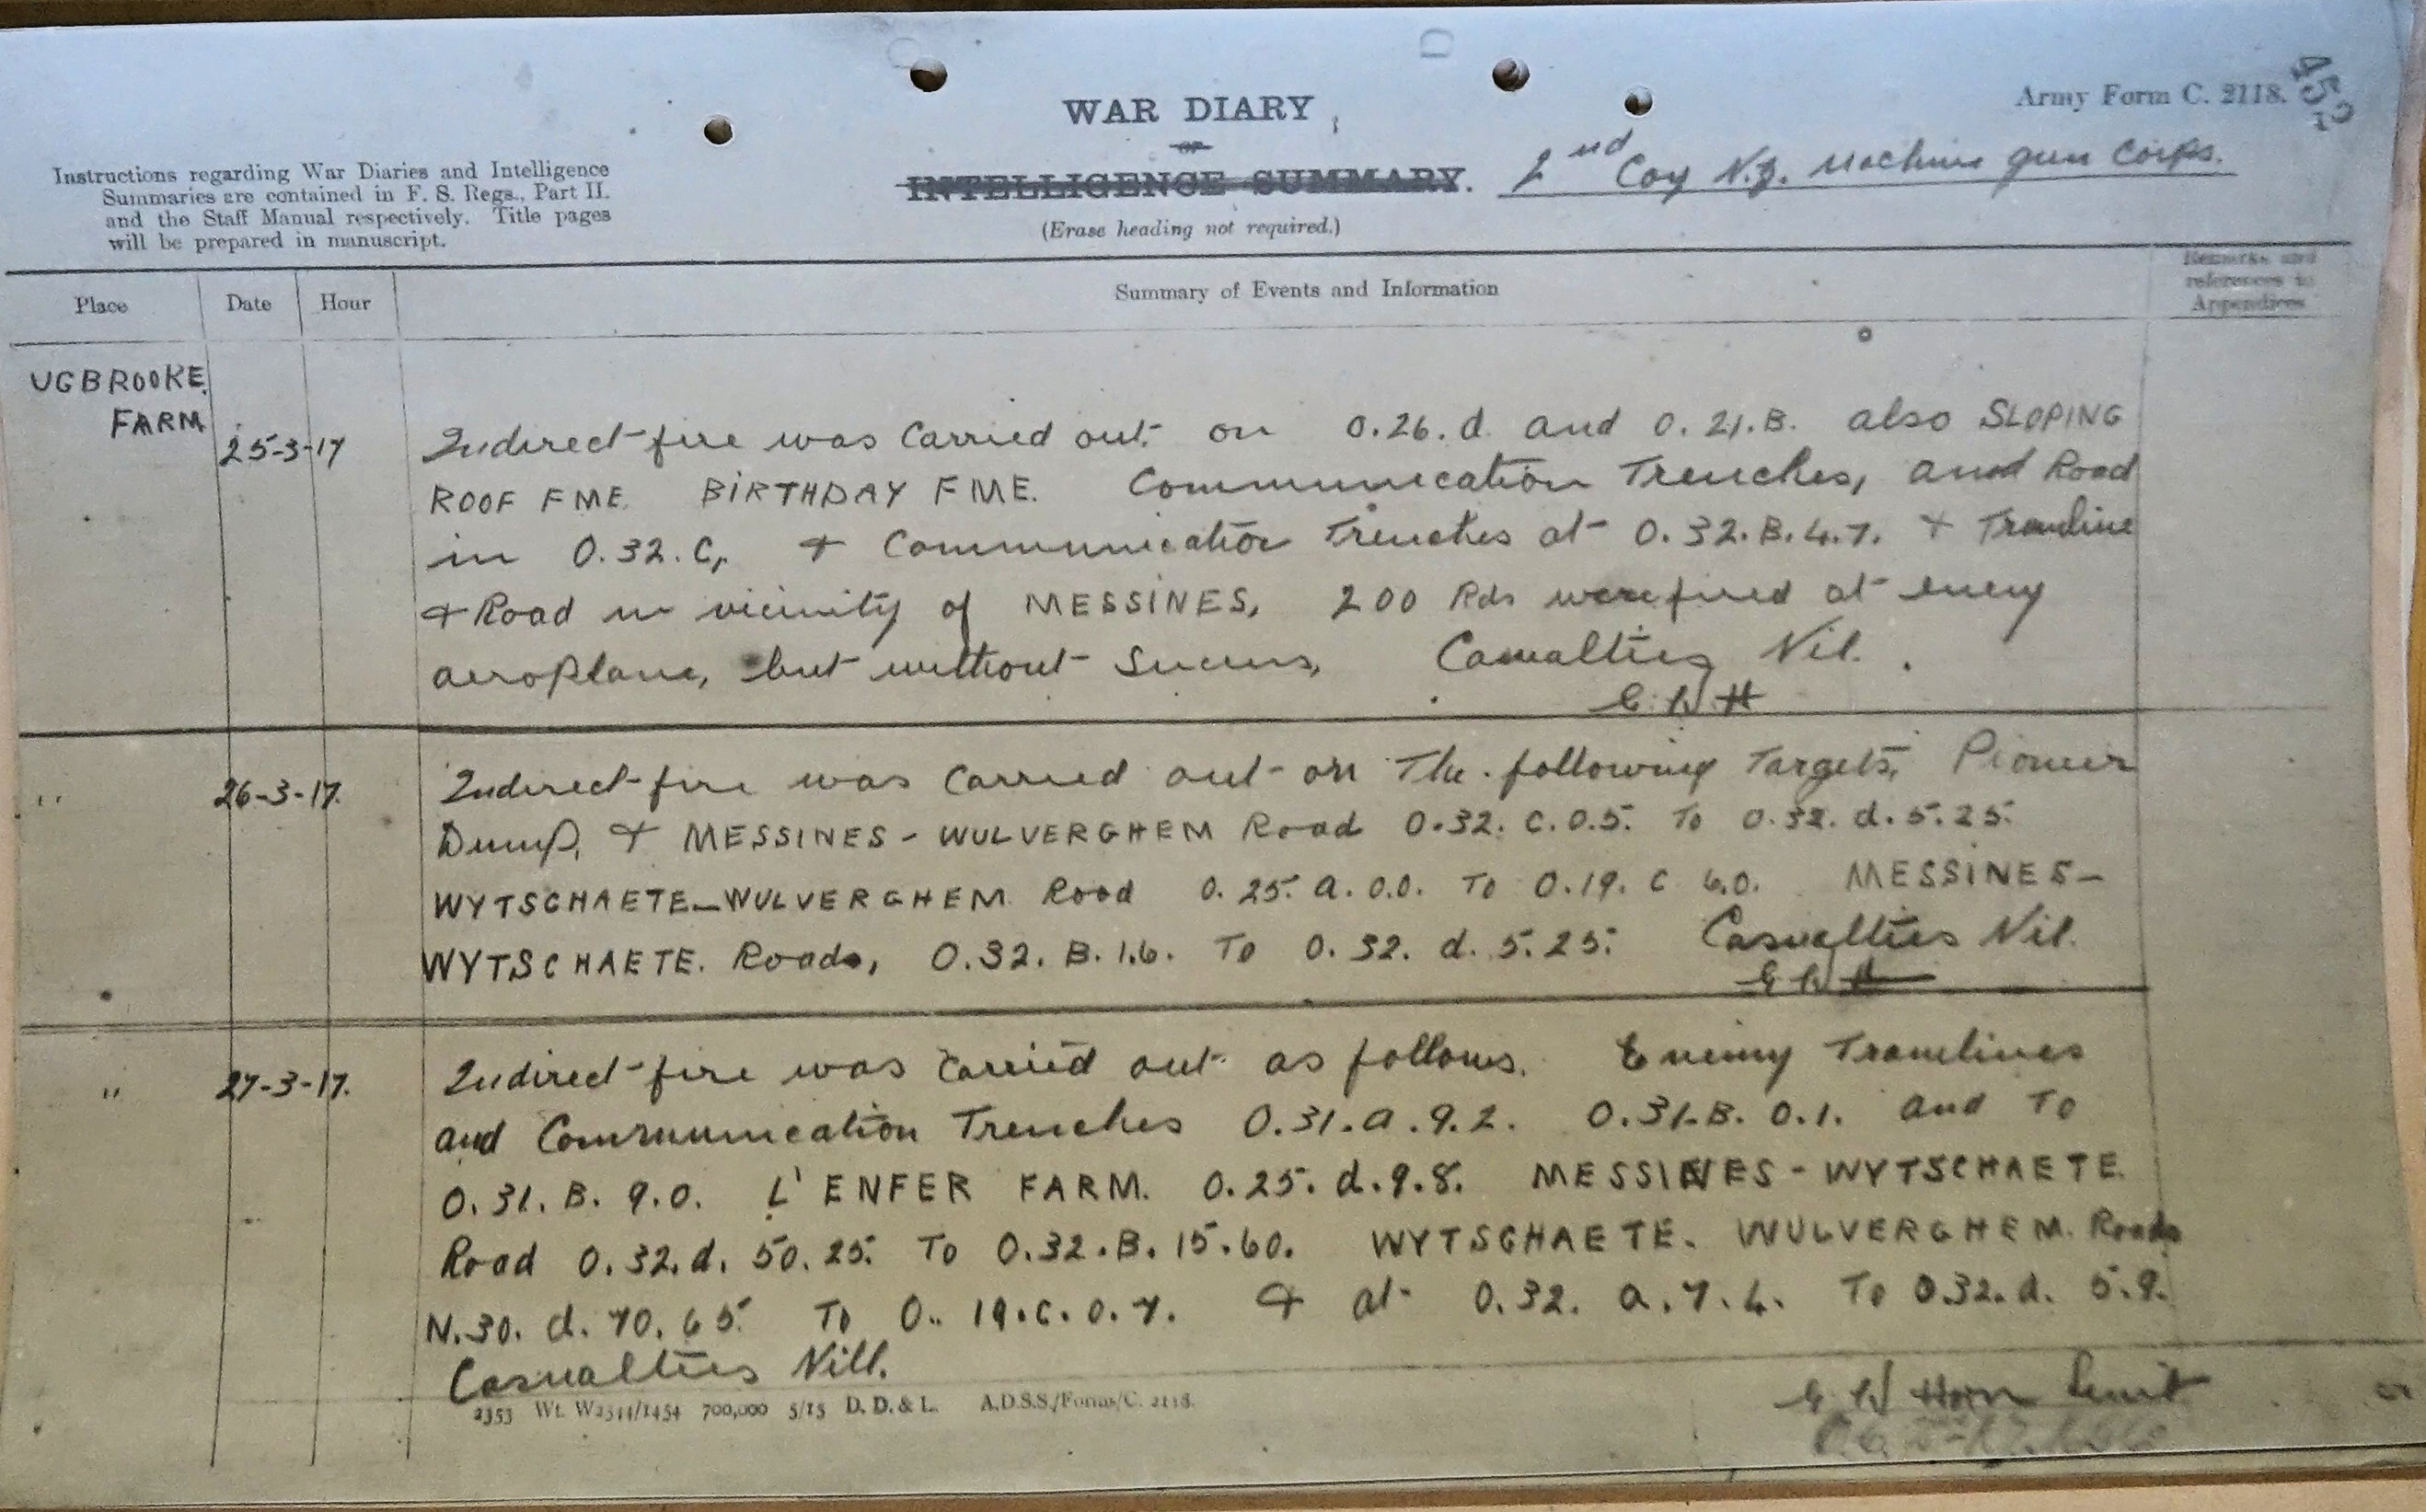 Army Form C. 2118.
WAR DIARY
OR
INTELLIGENCE SUMMARY.
2nd Coy N.Z. Machine gun Corps.
(Erase heading not required.)
Instructions regarding War Diaries and Intelligence
Summaries are contained in F. S. Regs., Part II.
and the Staff Manual respectively. Title pages
will be prepared in manuscript.
Place Date Hour Summary of Events and Information
Remarks and
references to
Appendices
UGBROOKE
FARM
25-3-17 Indirect fire was carried out on O.26.d and O.21.B. also SLOPING
ROOF FME. BIRTHDAY FME. Communication Trenches, and Road
in O.32.C, + Communication Trenches at O.32.B.4.7. + Tramline
+ Road in vicinity of MESSINES, 200 Rds were fired at enemy
aeroplane, but without success, Casualties Nil.
E W H
" 26-3-17. Indirect fire was carried out on The following Targets, Pioneer
Dump, + MESSINES - WULVERGHEM Road O.32.C.0.5. To O.32.d.5.25.
WYTSCHAETE-WULVERGHEM Road O.25.a.0.0. To O.19.C 6.0. MESSINES-
WYTSCHAETE. Roads, O.32.B.1.6. To O.32.d.5.25. Casualties Nil.
E W H
" 27-3-17. Indirect fire was carried out as follows. Enemy Tramlines
and Communication Trenches O.31.a.9.2. O.31.B.0.1. and To
O.31.B.9.0. L'ENFER FARM. O.25.d.9.8. MESSINES - WYTSCHAETE.
Road O.32.d.50.25. To O.32.B.15.60. WYTSCHAETE. WULVERGHEM. Roads
N.30.d.70.65. To O.19.c.0.7. + at O.32.a.7.4. To O.32.d.5.9.
Casualties Nill.
E W Horn Lieut
2353 Wt. W2544/1454 700,000 5/15 D. D. & L. A.D.S.S./Forms/C. 2118.